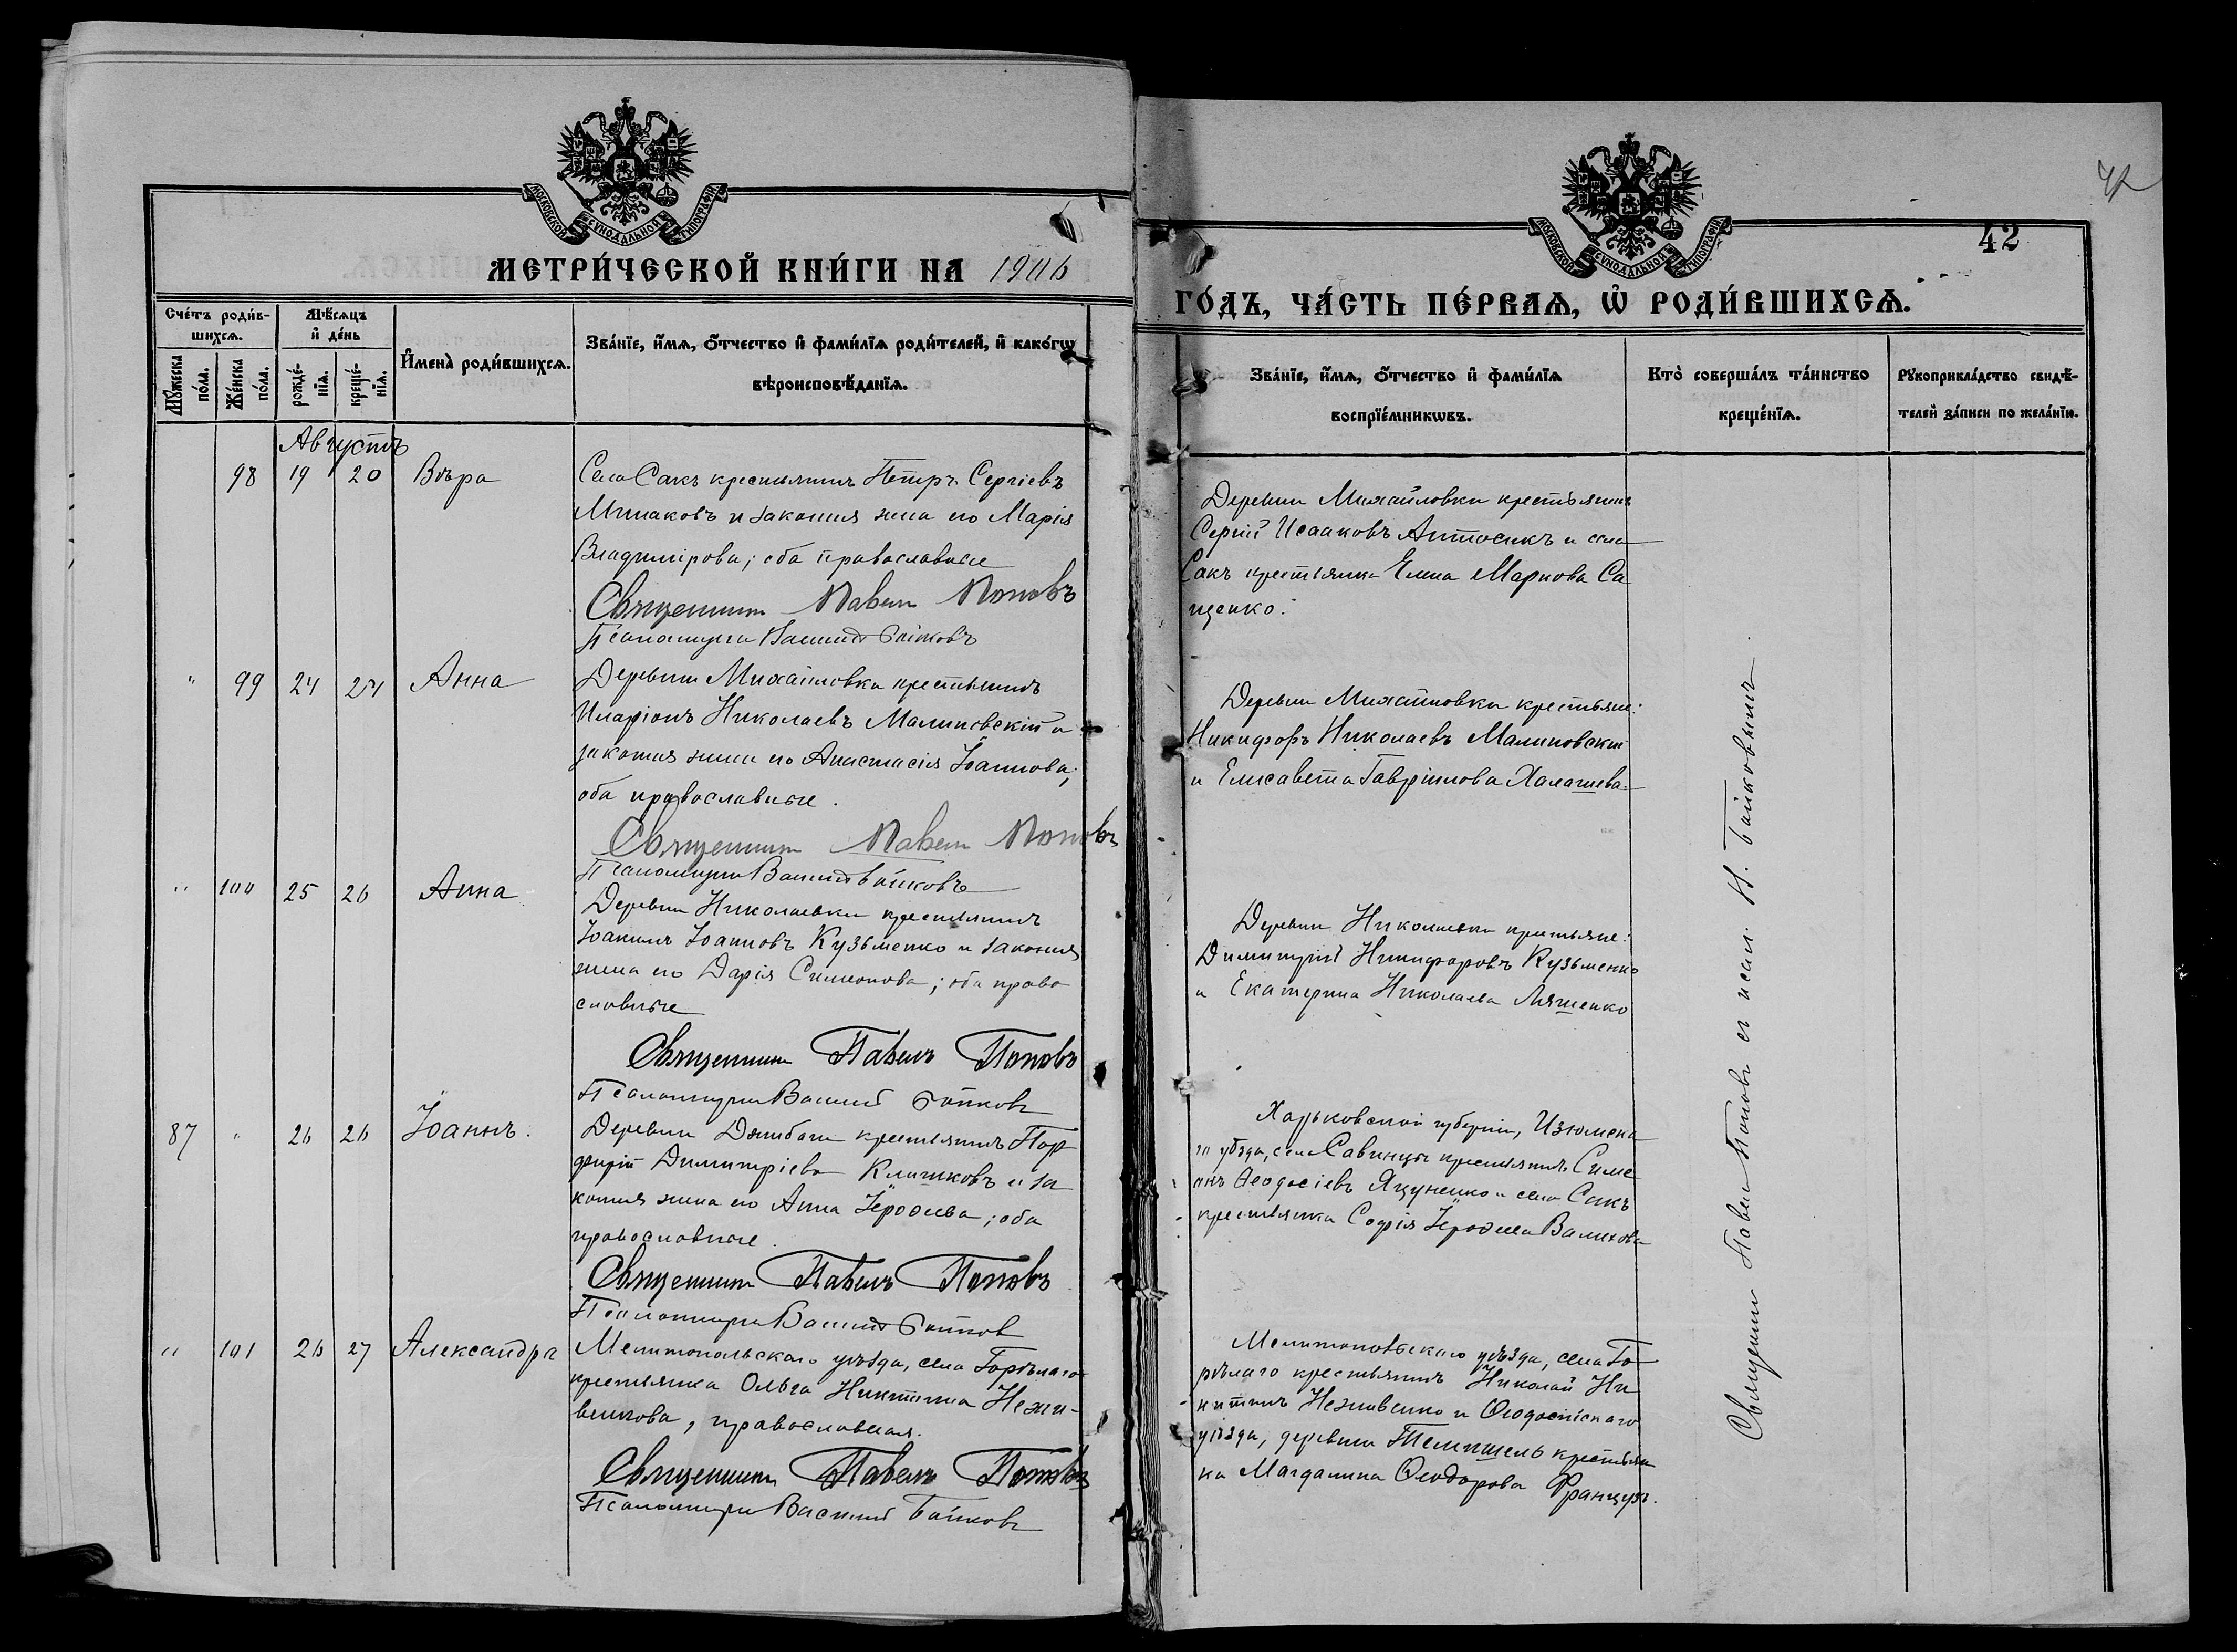 МОСКОВСКОЙ СѴНОДАЛЬНОЙ ТИПОГРАФІИ
МЕТРИ́ЧЕСКОЙ КНИ́ГИ НА 1906
Сче́тъ роди́в-
шихсѧ.
Мѣ́сѧцъ
и҆ де́нь
Мꙋ́жеска
по́ла.
Же́нска
по́ла.
рожде́-
нїѧ.
креще́-
нїѧ.
И҆мена̀ роди́вшихсѧ.
Зва́нїе, и҆́мѧ, ѻ҆́тчество и҆ фами́лїѧ роди́телей, и҆ како́гѡ
вѣроисповѣ́данїѧ.
Августъ
98 19 20 Вѣра
Села Сакъ крестьянинъ Петръ Сергіевъ
и законная жена его Марія
Владимірова; оба православные
Священникъ Павелъ Поповъ
Псаломщикъ Василій Бойковъ
" 99 24 24 Анна
Деревни Михайловки крестьянинъ
Иларіонъ Николаевъ Малиновскій и
законная жена его Анастасія Іоаннова,
оба православные.
Священникъ Павелъ Поповъ
Псаломщикъ Василій Бойковъ
" 100 25 26 Анна
Деревни Николаевки крестьянинъ
Іоакимъ Іоанновъ Кузьменко и законная
жена его Дарія Симеонова; оба право
славные
Священникъ Павелъ Поповъ
Псаломщикъ Василій Бойковъ
87 " 26 26 Іоаннъ.
Деревни крестьянинъ Пор
фирій Димитріевъ Климковъ и за
конная жена его Анна Іеровеева; оба
православные.
Священникъ Павелъ Поповъ
Псаломщикъ Василій Бойковъ
" 101 26 27 Александра
Мелитопольскаго уѣзда, села Горѣлаго
крестьянка Ольга Никитина Нежи-
венкова, православная.
Священникъ Павелъ Поповъ
Псаломщикъ Василій Бойковъ
42
МОСКОВСКОЙ СѴНОДАЛЬНОЙ ТИПОГРАФІИ
42
ГО́ДЪ, ЧА́СТЬ ПЕ́РВАѦ, Ѡ҆ РОДИ́ВШИХСѦ.
Зва́нїе, и҆́мѧ, ѻ҆́тчество и҆ фами́лїѧ
воспрїе́мникѡвъ.
Кто̀ соверша́лъ та́инство
креще́нїѧ.
Рꙋкоприкла́дство свидѣ́-
телей за́писи по жела́нїю.
Деревни Михайловки крестьянинъ
Сергій Исааковъ Антосикъ и села
Сакъ крестьянка Елена Маркова Са
щенко.
Деревни Михайловки крестьяне:
Никифоръ Николаевъ Малиновскій
и Елисавета Гавріилова Халашева.
Деревни Николаевки крестьяне:
Димитрій Никифоровъ Кузьменко
и Екатерина Николаева Ляшенко
Харьковской губерніи, Изюмска
го уѣзда, села Савинцы крестьянинъ Симе
онъ Ѳеодосіевъ Яцуненко и села Сакъ
крестьянка Софія Іеровеева Валихова
Мелитопольскаго уѣзда, села Го
рѣлаго крестьянинъ Николай Ни
китинъ Неживенко и Ѳеодосійскаго
уѣзда, деревни крестьян
ка Магдалина Ѳеодорова Французъ.
Священникъ Павелъ Поповъ съ псал. И. Бойковымъ.